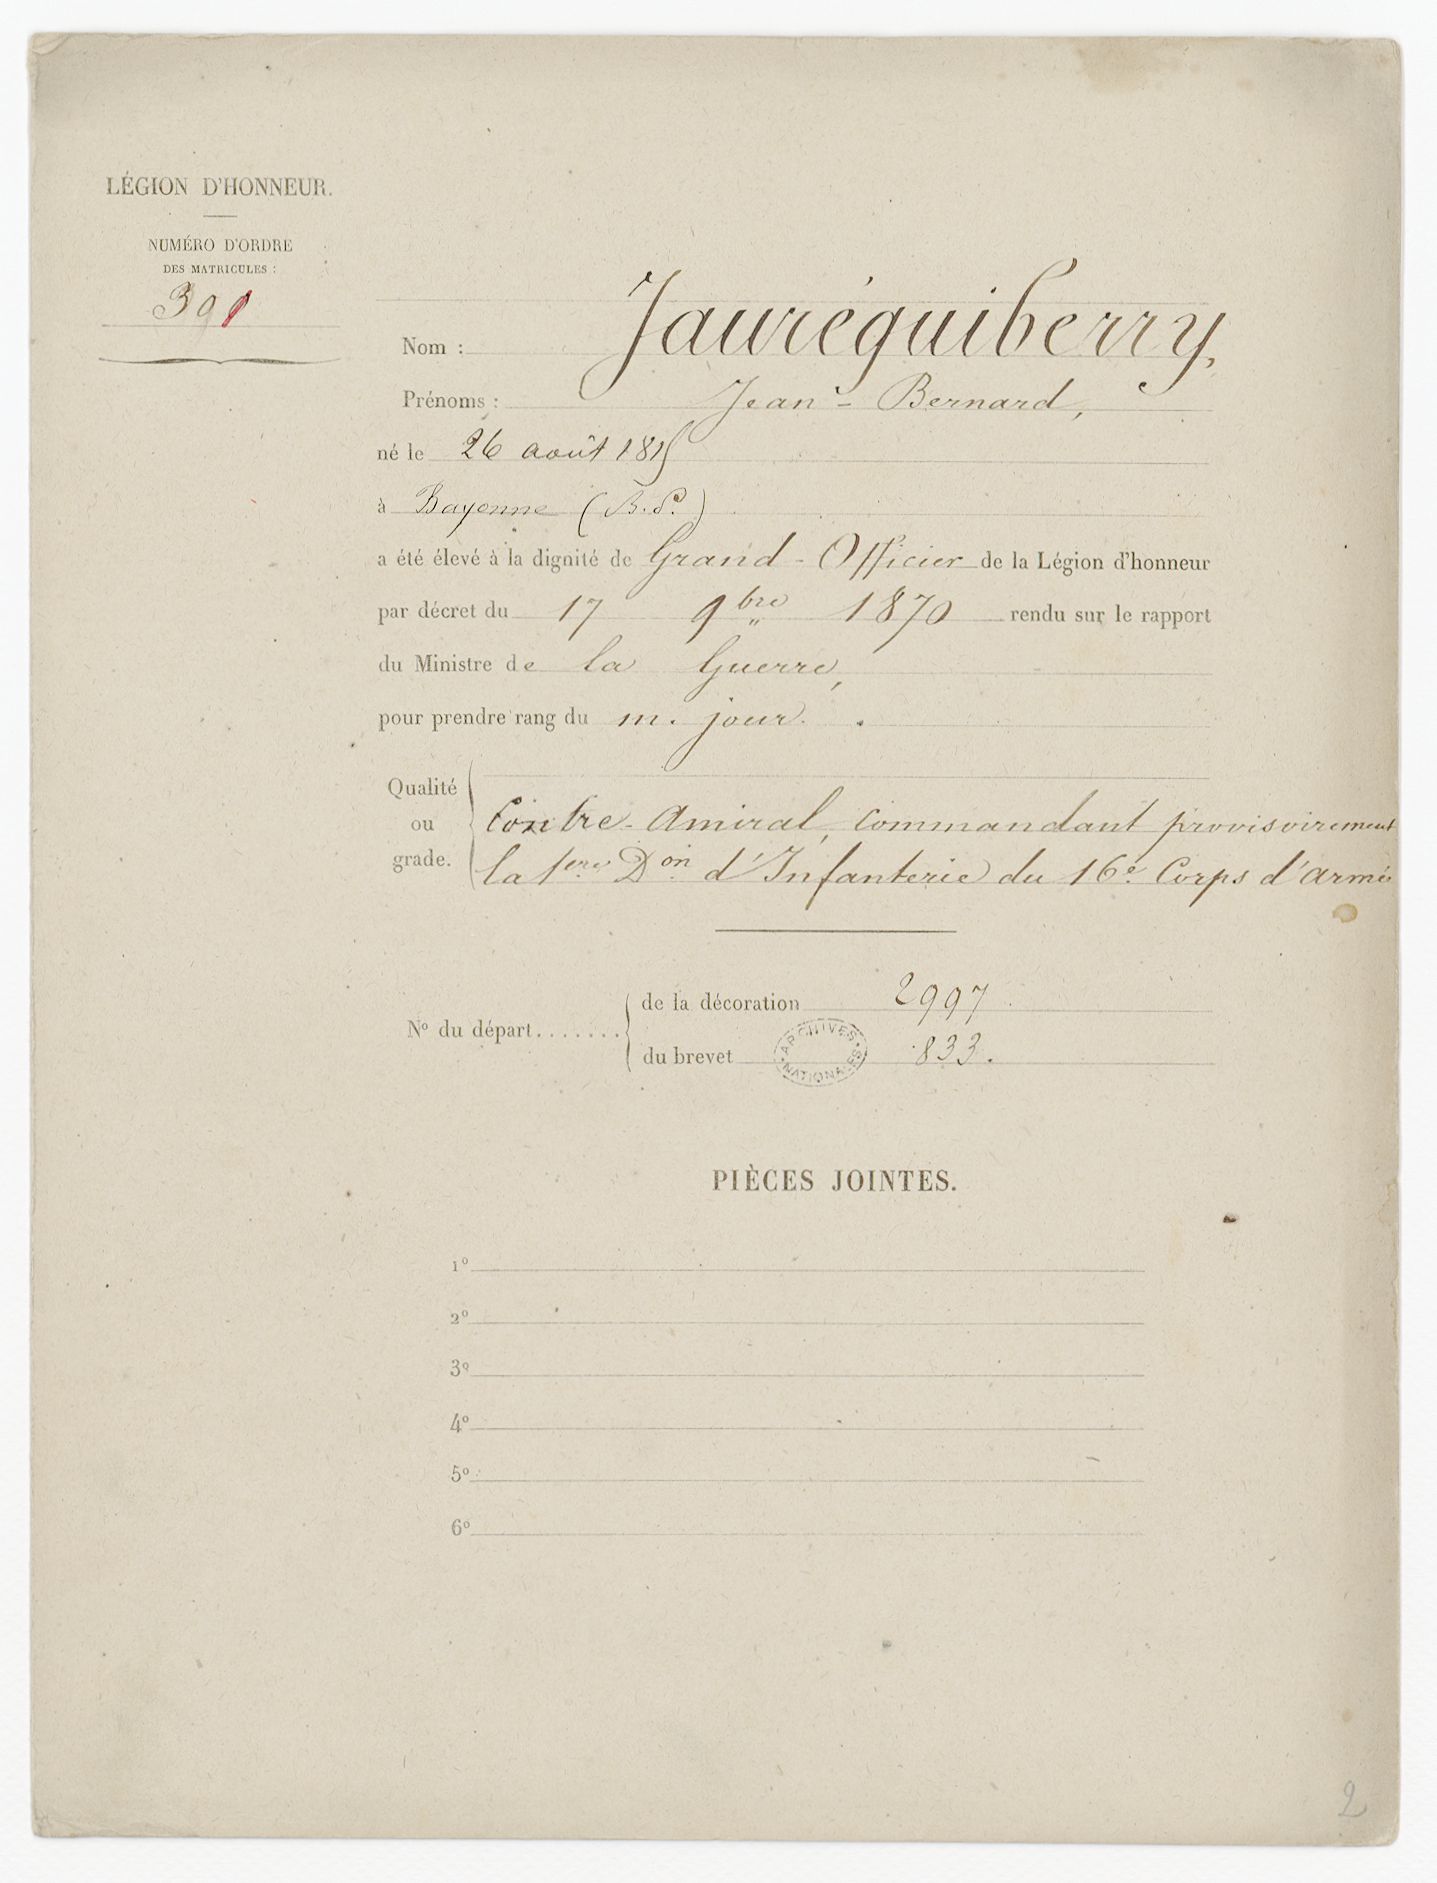 LÉGION D'HONNEUR.
NUMÉRO D'ORDRE
DES MATRICULES :
391
Nom : Jauréguiberry,
Prénoms : Jean - Bernard,
né le 26 août 1815
à Bayonne (B. P.)
a été élevé à la dignité de Grand - Officier de la Légion d'honneur
par décret du 17 9bre 1870 rendu sur le rapport
du Ministre de la Guerre,
pour prendre rang du m. jour.
Qualité
ou
grade.
Contre - Amiral, commandant provisoirement
la 1ere Don d'Infanterie du 16e Corps d'armée
No du départ.......
de la décoration 2997
du brevet 833.
ARCHIVES NATIONALES
PIÈCES JOINTES.
1o
2o
3o
4o
5o
6o
2